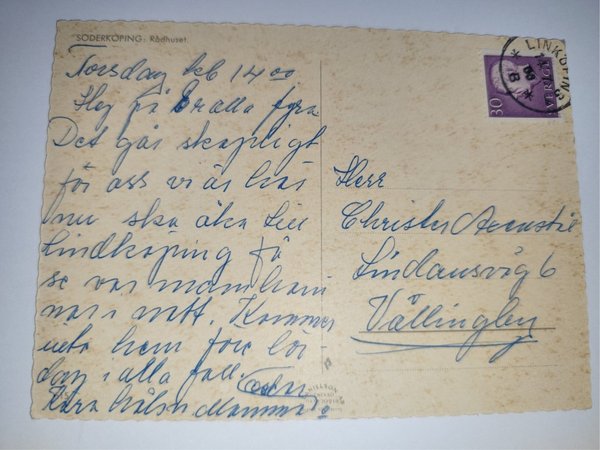 SÖDERKÖPING: Rådhuset
Torsdag kl 14 00
Hej på Eralla fyra
Det går skapligt
för oss vi är här
nu ska åka till
Lindköping få
se var mamma
natt. Kommer
inte hem före lör-
dag i alla fall.
Kära hälsn Mamma
LINKÖPING
SVERIGE
30
Herr
Christer
Lindansväg 6
Vällingby